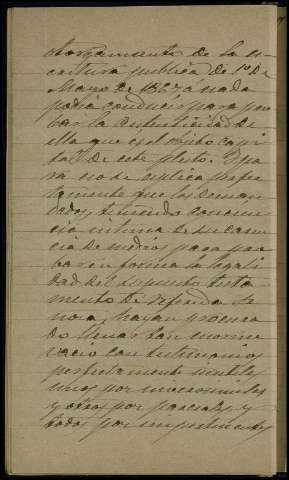 otorgamiento de la es-
critura publica de 1o De
Mayo de 1867 á nada
podrá conducir para pro
bar la autenticidad de
ella que es el objeto capi
tal de este pleito. Y pa
ra no se esplica perfec
tamente que los deman
dados, teniendo concien
cia intima de su caren
cia de medios para pro
bar en forma la legali
dad del supuesto testa
mento de referida Se
ñora, hayan procura
do llenar tan enorme
vacio con testimonios
perfectamente inutiles
unos por inverosimiles
y otros por parciales y
todos por impertinentes